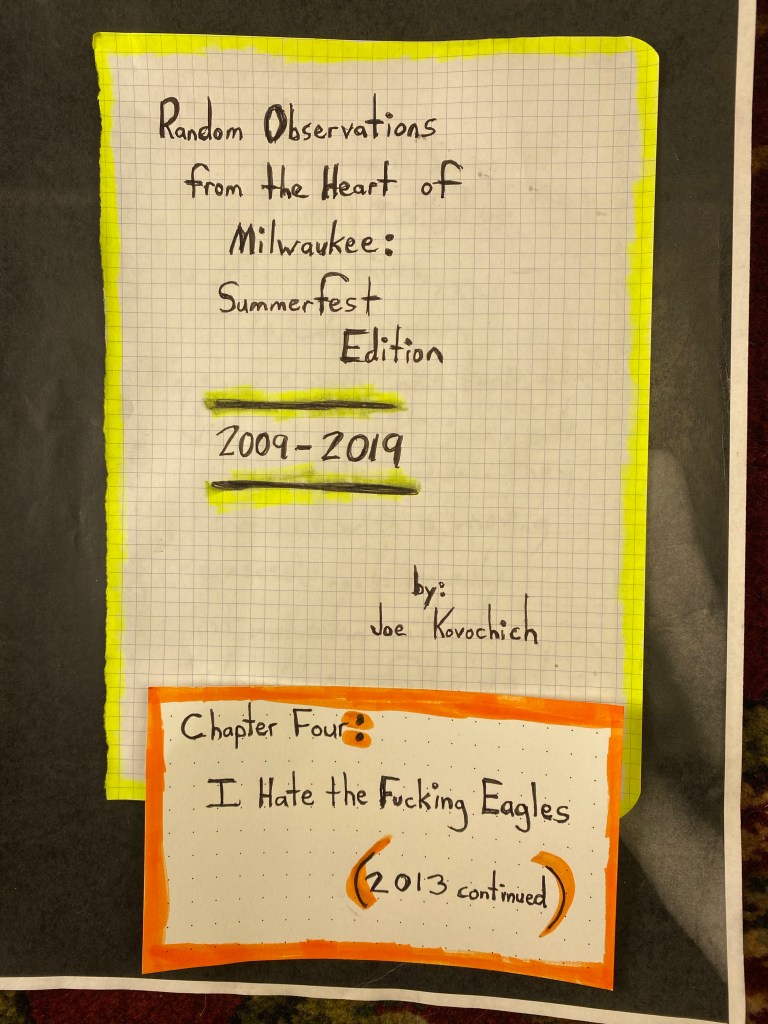 Random Observations
from the Heart of
Milwaukee:
Summerfest
Edition
2009-2019
by:
Joe Kovochich
Chapter Four:
I Hate the Fucking Eagles
(2013 continued)